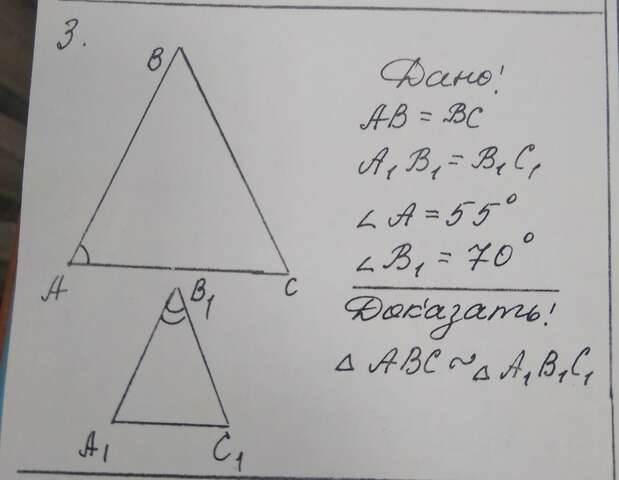 3.
B
A
C
B₁
A₁
C₁
Дано!
AB = BC
A₁B₁ = B₁C₁
∠A = 55°
∠B₁ = 70°
Доказать!
△ ABC ~ △ A₁B₁C₁